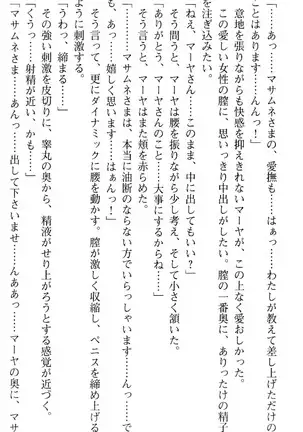 「……あっ……マサムネさまの、愛撫も……はぁっ……わたしが教えて差し上げただけの
ことはあります……んんっ！」
意地を張りながらも快感を抑えきれないマーヤが、この上なく愛おしかった。
この愛しい女性の膣に、思いっきり中出しがしたい。膣の一番奥に、ありったけの精子
を注ぎ込みたい。
「ねえ、マーヤさん……このまま、中に出してもいい？」
そう問うと、マーヤは腰を振りながら少し考え、そして小さく頷いた。
「ありがとう、マーヤさんのこと……大事にするからね……」
そう言うと、マーヤはまた頬を赤らめた。
「もう……マサムネさまは、本当に油断のならない方でいらっしゃいます……んんっ……で
も、あっ……嬉しく思います……はぁんっ！」
そう言って、更にダイナミックに腰を動かす。膣が激しく収縮し、ペニスを締め上げる
ように刺激する。
「うわっ、締まる……」
その強い刺激を皮切りに、睾丸の奥から、精液がせり上がろうとする感覚が近づく。
「くうっ……射精が近い、かも……」
「マサムネさま……あんっ……出して下さいませ……んああっ……マーヤの奥に、マサ